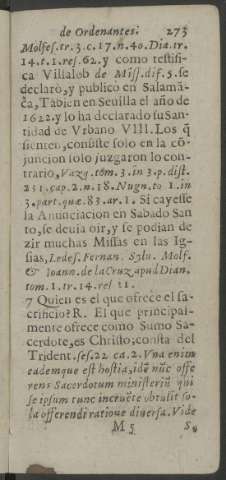 de Ordenantes: 273
Molfes. tr. 3. c. 17. n. 40. Dia. tr.
14. t. 1. res. 62. y como testifi-
ca Villalob de Miss. dif. 5. se
declaró, y publicó en Salamã-
ca, Tãbien en Seuilla el año de
1622. y lo ha declarado su San-
tidad de Vrbano VIII. Los q̃
sienten, consiste solo en la cõ-
juncion solo juzgaron lo con-
trario, Vazq. tom. 3. in 3. p. dist.
231. cap. 2. n. 18. Nugn. to 1. in
3. part. quæ. 83. ar. 1. Si cayesse
la Anunciacion en Sabado San
to, se deuia oir, y se podian de
zir muchas Missas en las Igle-
sias, Ledes. Fernan. Sylu. Molf.
& Ioann. de la Cruz apud Dian.
tom. 1. tr. 14. res 11.
7 Quien es el que ofrece el sa-
crificio? R. El que principal-
mente ofrece como Sumo Sa-
cerdote, es Christo; consta del
Trident. ses. 22 ca. 2. Vna enim
eademque est hostia, idẽ nũc offe
rens Sacerdotum ministeriũ qui
se ipsum tunc incruẽte obtulit so-
la offerendi ratione diuersa. Vide
M 5 S.